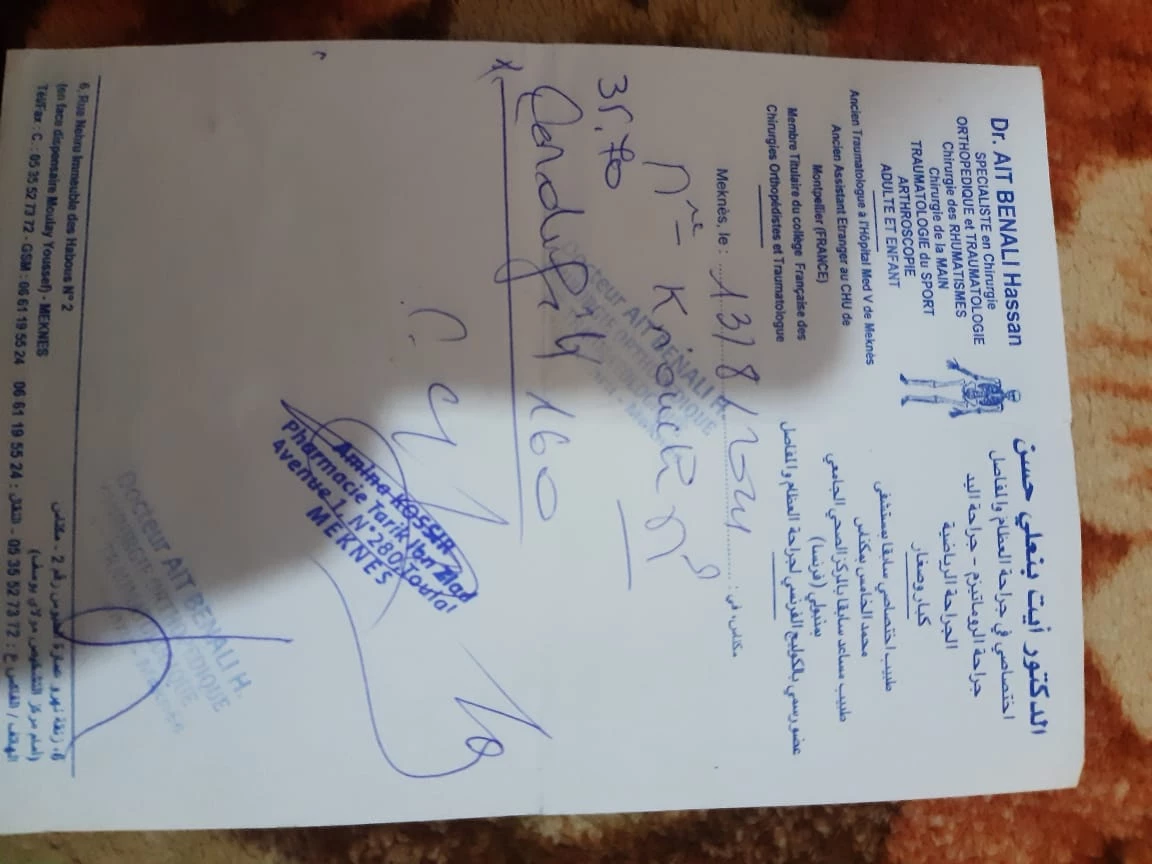 Dr. AIT BENALI Hassan
SPECIALISTE en Chirurgie
ORTHOPEDIQUE et TRAUMATOLOGIE
Chirurgie des RHUMATISMES
Chirurgie de la MAIN
TRAUMATOLOGIE du SPORT
ARTHROSCOPIE
ADULTE ET ENFANT
Ancien Traumatologue à l'Hôpital Med V de Meknès
Ancien Assistant Etranger au CHU de
Montpellier (FRANCE)
Membre Titulaire du collège Française des
Chirurgies Orthopédistes et Traumatologue
الدكتور أيت بنعلي حسن
اختصاصي في جراحة العظام والمفاصل
جراحة الروماتيزم - جراحة اليد
الجراحة الرياضية
كبار وصغار
طبيب اختصاصي سابقا بمستشفى
محمد الخامس بمكناس
طبيب مساعد سابقا بالمركز الصحي الجامعي
بمنبولي (فرنسا)
عضو رسمي بالكوليج الفرنسي لجراحة العظام والمفاصل
Meknès, le : 13/8/ مكناس، في :
160
Docteur AIT BENALI H.
Amina KOSSIR
Pharmacie Tarik Ibn Ziad
Avenue 1, N° 280 Toulal
MEKNES
Docteur AIT BENALI H.
6, Rue Nehru Immeuble des Habous N° 2
(en face dispensaire Moulay Youssef) - MEKNES
Tél/Fax : C : 05 35 52 73 72 - GSM : 06 61 19 55 24
6، زنقة نهرو عمارة الحبوس رقم 2 - مكناس
(أمام مركز التشخيص مولاي يوسف)
الهاتف / الفاكس ع : 05 35 52 73 72 - النقال : 06 61 19 55 24